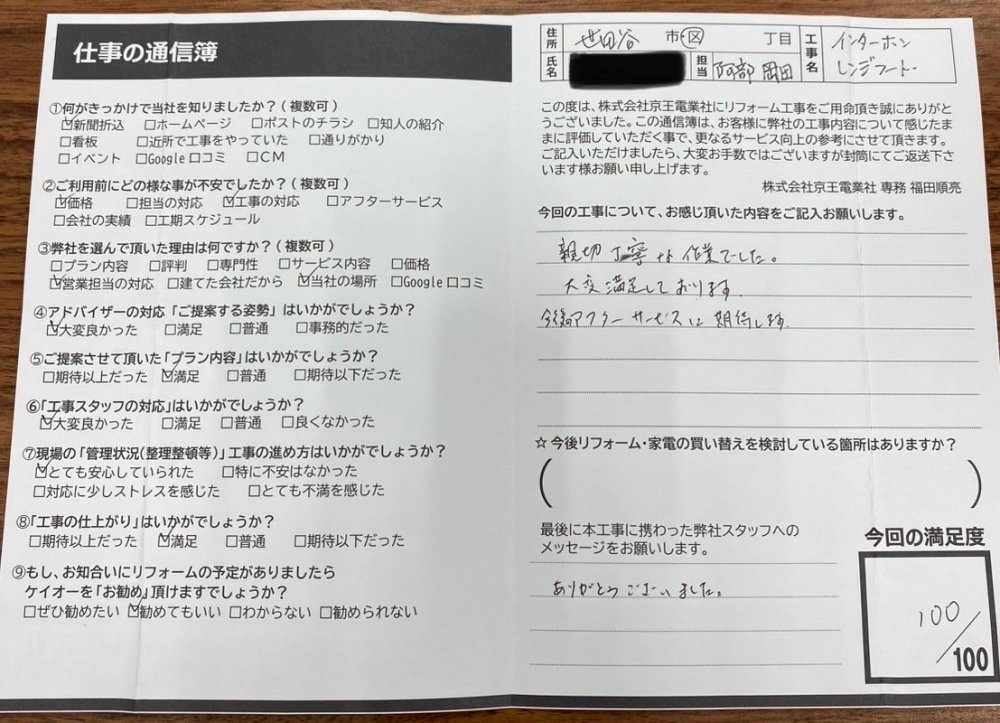 仕事の通信簿
①何がきっかけで当社を知りましたか?(複数可)
☑新聞折込 □ホームページ □ポストのチラシ □知人の紹介
□看板 □近所で工事をやっていた □通りがかり
□イベント □Google口コミ □CM
②ご利用前にどの様な事が不安でしたか?(複数可)
☑価格 □担当の対応 ☑工事の対応 □アフターサービス
□会社の実績 □工期スケジュール
③弊社を選んで頂いた理由は何ですか?(複数可)
□プラン内容 □評判 □専門性 □サービス内容 □価格
☑営業担当の対応 □建てた会社だから ☑当社の場所 □Google口コミ
④アドバイザーの対応「ご提案する姿勢」はいかがでしょうか?
☑大変良かった □満足 □普通 □事務的だった
⑤ご提案させて頂いた「プラン内容」はいかがでしょうか?
□期待以上だった ☑満足 □普通 □期待以下だった
⑥「工事スタッフの対応」はいかがでしょうか?
☑大変良かった □満足 □普通 □良くなかった
⑦現場の「管理状況(整理整頓等)」工事の進め方はいかがでしょうか?
☑とても安心していられた □特に不安はなかった
□対応に少しストレスを感じた □とても不満を感じた
⑧「工事の仕上がり」はいかがでしょうか?
□期待以上だった ☑満足 □普通 □期待以下だった
⑨もし、お知合いにリフォームの予定がありましたら
ケイオーを「お勧め」頂けますでしょうか?
□ぜひ勧めたい ☑勧めてもいい □わからない □勧められない
住所 世田谷 市・区 丁目
氏名 担当 阿部 岡田
工事名 インターホン
レンジフード
この度は、株式会社京王電業社にリフォーム工事をご用命頂き誠にありがと
うございました。この通信簿は、お客様に弊社の工事内容について感じたま
まに評価していただく事で、更なるサービス向上の参考にさせて頂きます。
ご記入いただけましたら、大変お手数ではございますが封筒にてご返送下さ
います様お願い申し上げます。
株式会社京王電業社 専務 福田順亮
今回の工事について、お感じ頂いた内容をご記入お願いします。
親切丁寧な作業でした。
大変満足しております。
今後のアフターサービスに期待します。
☆今後リフォーム・家電の買い替えを検討している箇所はありますか?
( )
最後に本工事に携わった弊社スタッフへの
メッセージをお願いします。
ありがとうございました。
今回の満足度
100/100